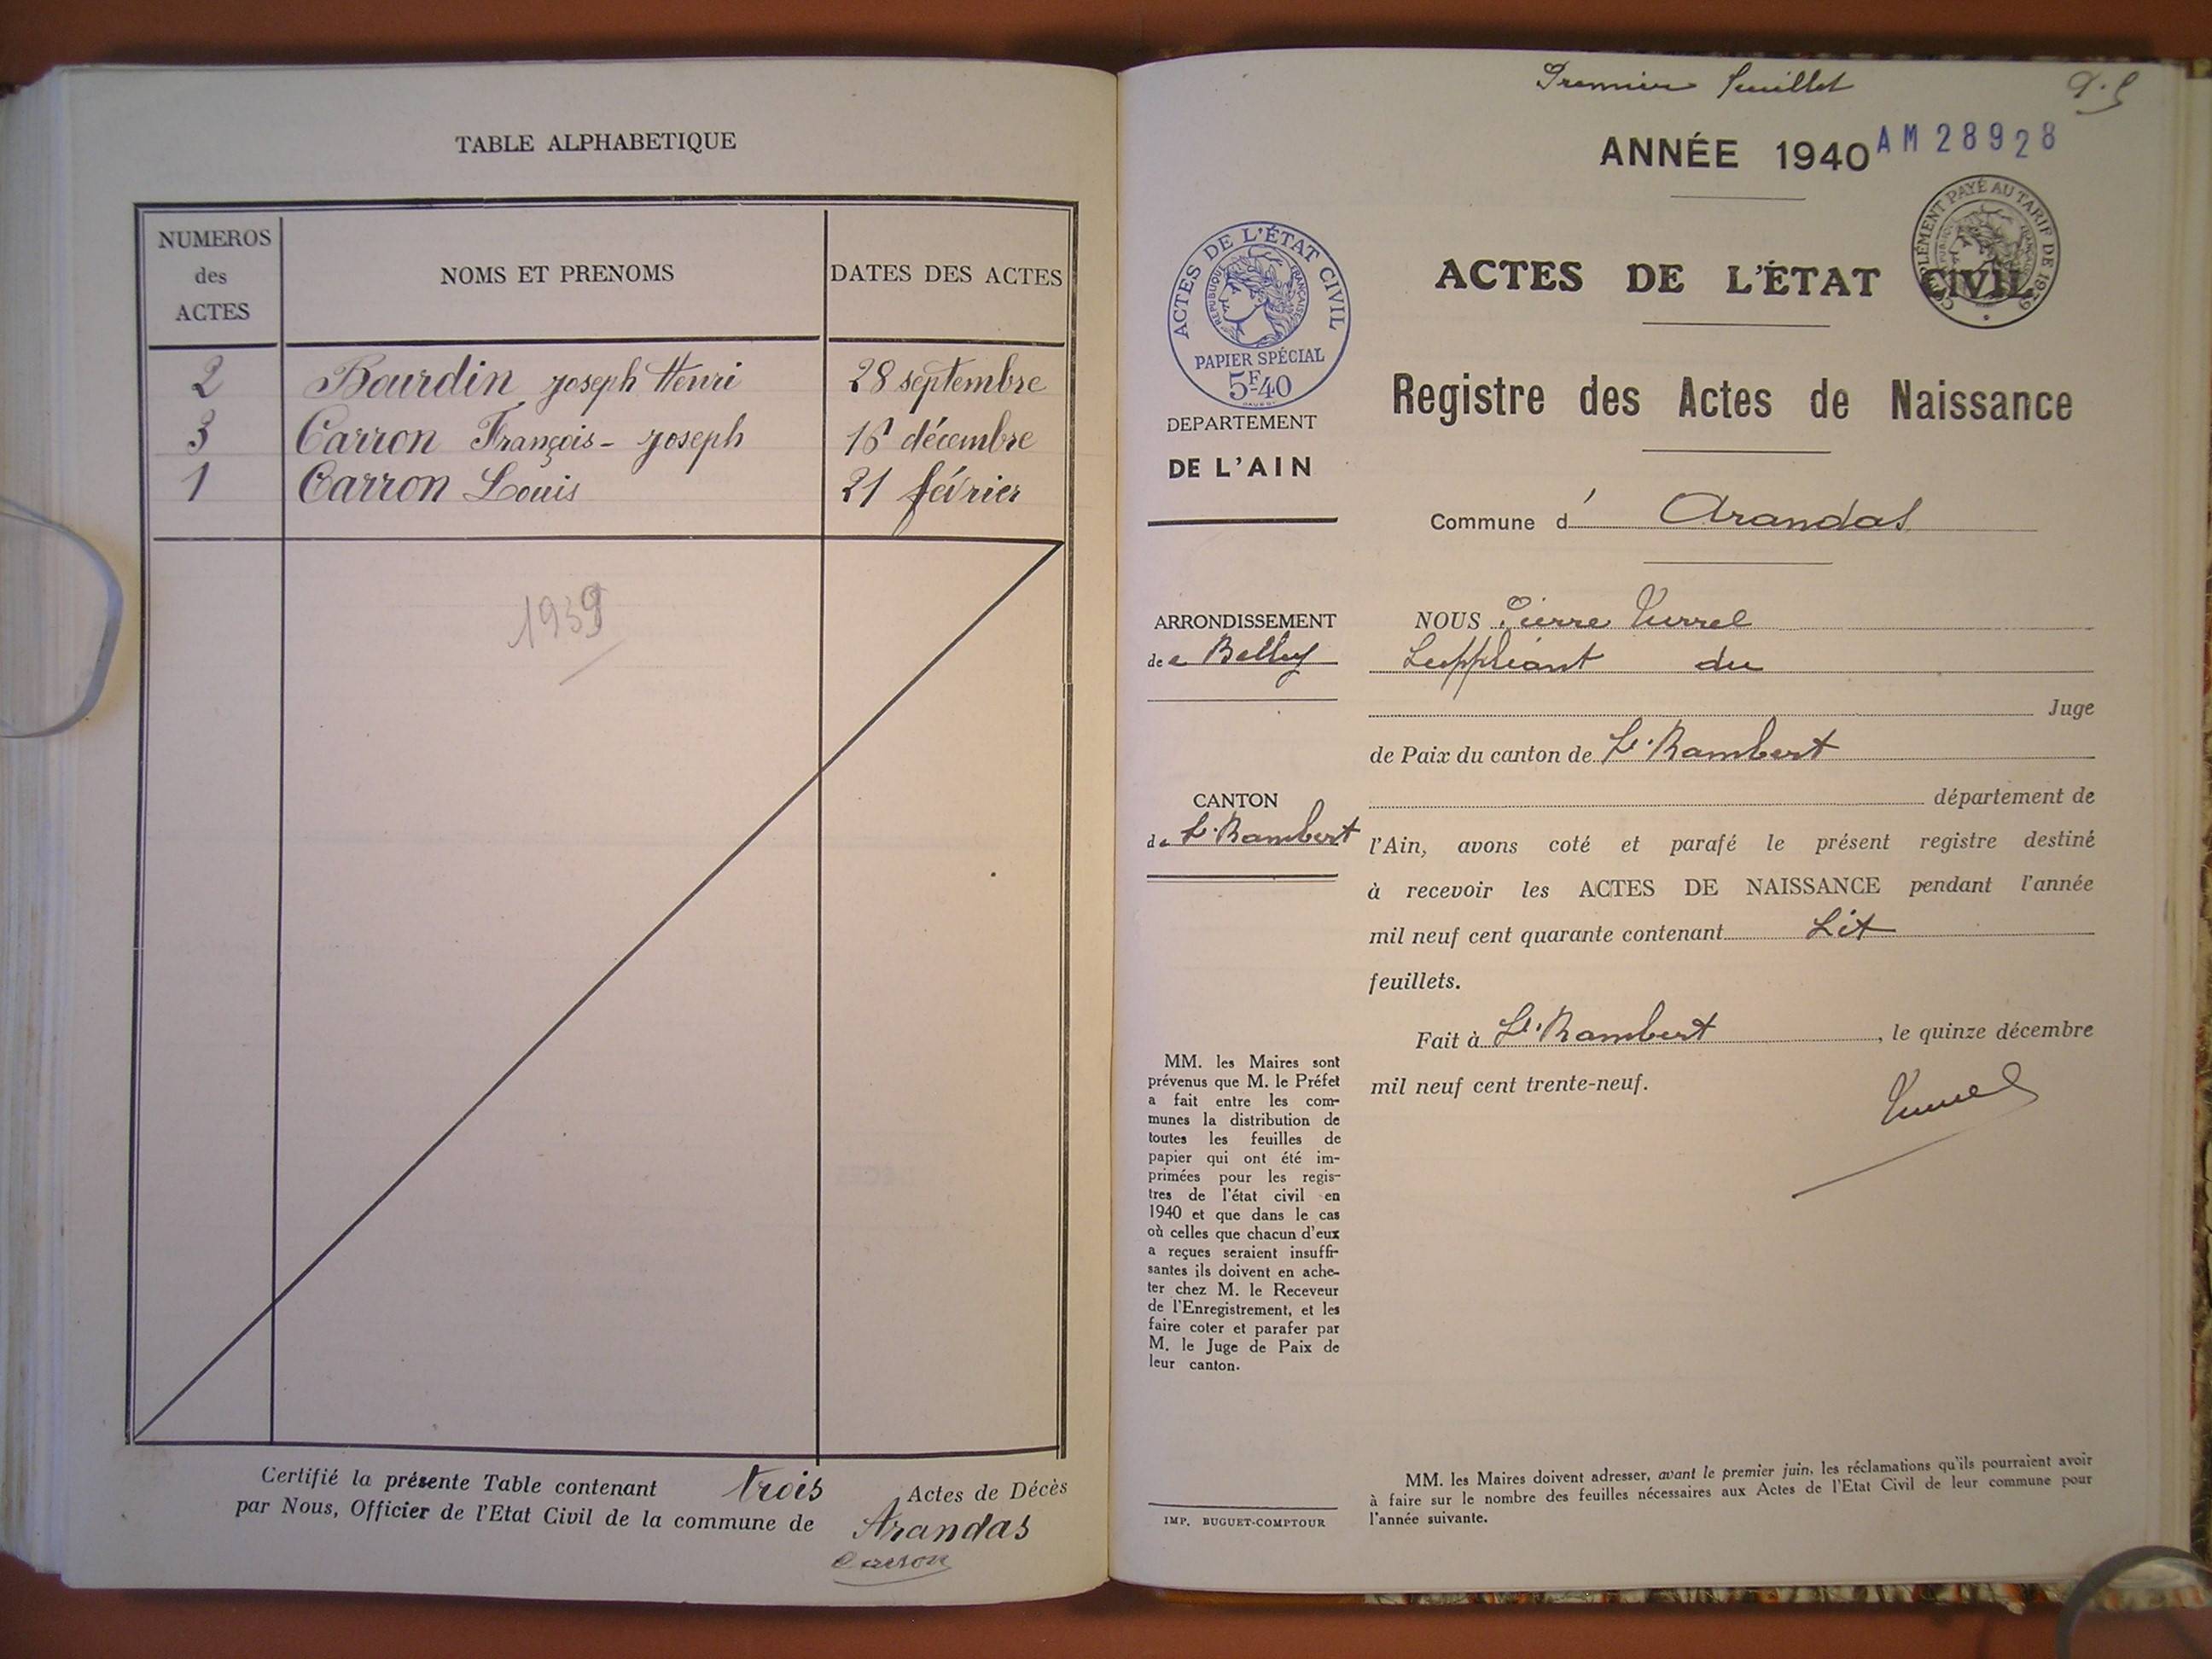 TABLE ALPHABETIQUE
NUMEROS des ACTES
NOMS ET PRENOMS
DATES DES ACTES
2 Bourdin Joseph Henri 28 septembre
3 Carron François-Joseph 16 décembre
1 Carron Louis 21 février
1939
Certifié la présente Table contenant trois Actes de Décès
par Nous, Officier de l'Etat Civil de la commune de Arandas
Carron
Premier feuillet
ANNÉE 1940
AM 28928
ACTES DE L'ÉTAT CIVIL
RÉPUBLIQUE FRANÇAISE
PAPIER SPÉCIAL
5F40
DEPARTEMENT
DE L'AIN
ACTES DE L'ÉTAT CIVIL
Registre des Actes de Naissance
Commune d' Arandas
ARRONDISSEMENT
de Belley
CANTON
de St Rambert
NOUS Pierre Turrel
Suppléant du
Juge
de Paix du canton de St Rambert
département de
l'Ain, avons coté et parafé le présent registre destiné
à recevoir les ACTES DE NAISSANCE pendant l'année
mil neuf cent quarante contenant
feuillets.
Fait à St Rambert, le quinze décembre
mil neuf cent trente-neuf.
Turrel
MM. les Maires sont
prévenus que M. le Préfet
a fait entre les com-
munes la distribution de
toutes les feuilles de
papier qui ont été im-
primées pour les regis-
tres de l'état civil en
1940 et que dans le cas
où celles que chacun d'eux
a reçues seraient insuffi-
santes ils doivent en ache-
ter chez M. le Receveur
de l'Enregistrement, et les
faire coter et parafer par
M. le Juge de Paix de
leur canton.
IMP. BUGUET-COMPTOUR
MM. les Maires doivent adresser, avant le premier juin, les réclamations qu'ils pourraient avoir
à faire sur le nombre des feuilles nécessaires aux Actes de l'Etat Civil de leur commune pour
l'année suivante.